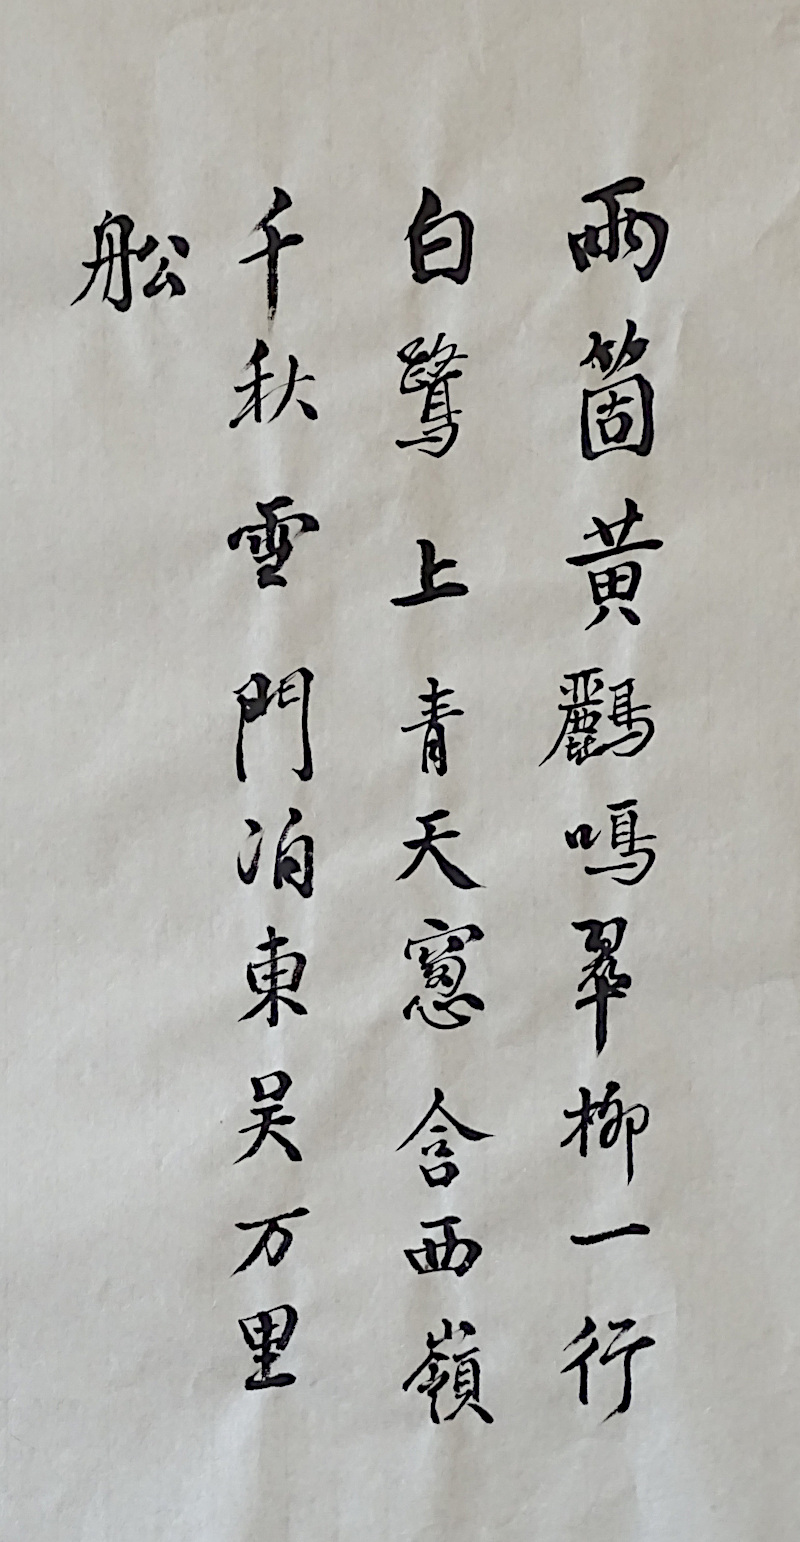 兩箇黄鸝鳴翠柳一行
白鷺上青天窓含西嶺
千秋雪門泊東吴万里
舩